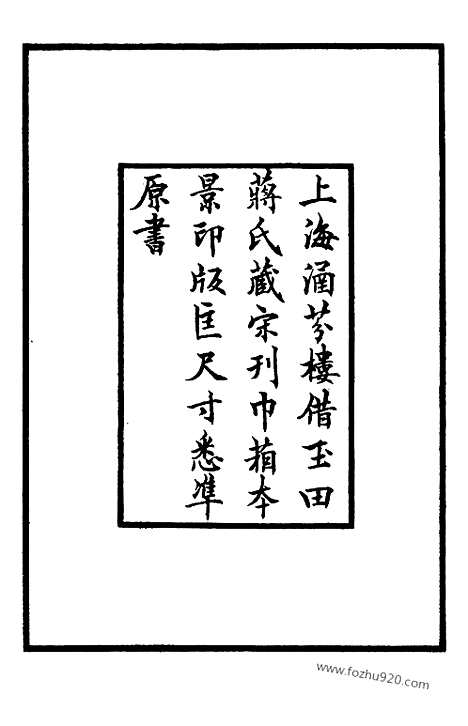 上海涵芬樓借玉田
蔣氏藏宋刊巾葙本
景印版匡尺寸悉準
原書
www.fozhu920.com